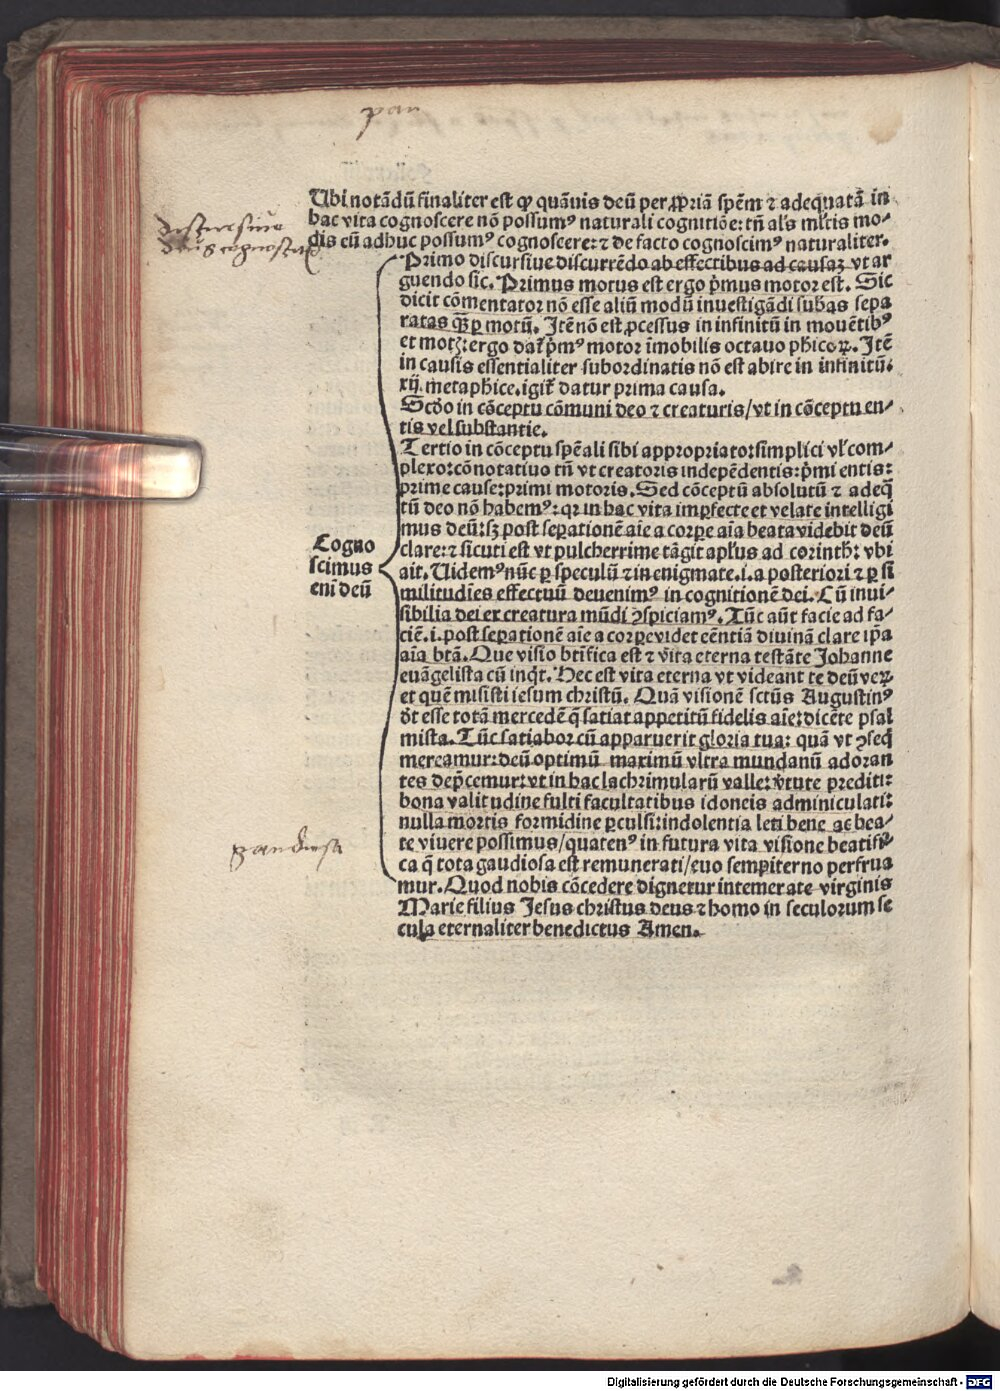 pan
Ubi notādū finaliter est ꝙ quāuis deū per ꝓpriā spēm ⁊ adequatā in
hac vita cognoscere nō possumꝰ naturali cognitiōe: tñ al's ml'tis mo-
dis eū adhuc possumꝰ cognoscere: ⁊ de facto cognoscimꝰ naturaliter.
discursiue
deus cognosci
Primo discursiue discurrēdo ab effectibus ad causaꝫ vt ar
guendo sic. Primus motus est ergo p̄mus motor est. Sic
dicit cōmentator nō esse aliū modū inuestigādi subās sepa
ratas qꝫ̄ ꝑ motū. Itē nō est ꝓcessus in infinitū in mouētibꝰ
et motꝭ: ergo dat̄ p̄mꝰ motor īmobilis octauo phicoꝝ. Itē
in causis essentialiter subordinatis nō est abire in infinitū.
xij. metaphice. igit̄ datur prima causa.
Scd̄o in cōceptu cōmuni deo ⁊ creaturis/ vt in cōceptu en-
tis vel substantie.
Tertio in cōceptu spēali sibi appropriato: simplici vl' com-
plexo: cōnotatiuo tñ vt creatoris indepēdentis: p̄mi entis:
prime cause: primi motoris. Sed cōceptū absolutū ⁊ adeq̄
tū deo nō habemꝰ: qꝛ in hac vita imꝑfecte et velate intelligi
mus deū: sꝫ post seꝑationē aīe a corꝑe aīa beata videbit deū
clare: ⁊ sicuti est vt pulcherrime tāgit apl'us ad corinth: vbi
ait. Uidemꝰ nūc ꝑ speculū ⁊ in enigmate. i. a posteriori ⁊ ꝑ si
militudies effectuū deuenimꝰ in cognitionē dei. Cū inui-
sibilia dei ex creatura mūdi ꝯspiciamꝰ. Tūc aūt facie ad fa-
ciē. i. post seꝑationē aīe a corꝑe videt cēntiā diuinā clare ip̄a
aīa btā. Que visio btīfica est ⁊ vita eterna testāte Johanne
euāgelista cū inq̇t. Hec est vita eterna vt videant te deū veꝝ
et quē misisti iesum christū. Quā visionē sctūs Augustinꝰ
dt̄ esse totā mercedē q̄ satiat appetitū fidelis aīe: dicēte psal
mista. Tūc satiabor cū apparuerit gloria tua: quā vt ꝯseq̄
mereamur: deū optimū maximū vltra mundanū adoran
tes dep̄cemur: vt in hac lachrimularū valle: v̄tute prediti:
bona valitudine fulti facultatibus idoneis adminiculati:
nulla mortis formidine ꝑculsi: indolentia leti bene ac bea-
te viuere possimus/ quatenꝰ in futura vita visione beatifi-
ca q̄ tota gaudiosa est remunerati/ euo semꝑiterno perfrua
mur. Quod nobis cōcedere dignetur intemerate virginis
Marie filius Jesus christus deus ⁊ homo in seculorum se
cula eternaliter benedictus Amen.
Cogno
scimus
eni deū
Digitalisierung gefördert durch die Deutsche Forschungsgemeinschaft - DFG